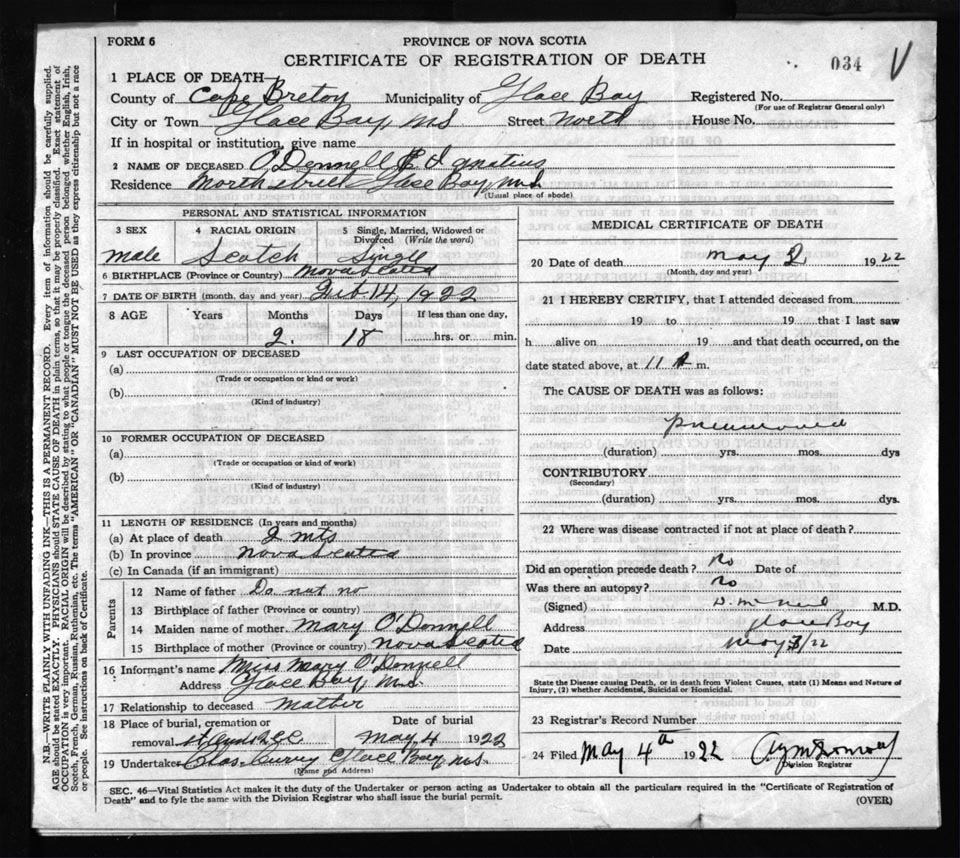 FORM 6
PROVINCE OF NOVA SCOTIA
CERTIFICATE OF REGISTRATION OF DEATH
034 V
1 PLACE OF DEATH
County of Cape Breton Municipality of Glace Bay Registered No.
(For use of Registrar General only)
City or Town Glace Bay, N.S. Street North House No.
If in hospital or institution, give name
2 NAME OF DECEASED O'Donnell Ignatius
Residence North Street Glace Bay, N.S.
(Usual place of abode)
PERSONAL AND STATISTICAL INFORMATION
3 SEX 4 RACIAL ORIGIN 5 Single, Married, Widowed or Divorced (Write the word)
Male Scotch Single
6 BIRTHPLACE (Province or Country) Nova Scotia
7 DATE OF BIRTH (month, day and year) Feb 14, 1922
8 AGE Years Months Days If less than one day,
2. 18 hrs. or min.
9 LAST OCCUPATION OF DECEASED
(a)
(Trade or occupation or kind or work)
(b)
(Kind of industry)
10 FORMER OCCUPATION OF DECEASED
(a)
(Trade or occupation or kind of work)
(b)
(Kind of industry)
11 LENGTH OF RESIDENCE (In years and months)
(a) At place of death 2 mts
(b) In province Nova Scotia
(c) In Canada (if an immigrant)
Parents
12 Name of father Do not no
13 Birthplace of father (Province or country)
14 Maiden name of mother Mary O'Donnell
15 Birthplace of mother (Province or country) Nova Scotia
16 Informant's name Miss Mary O'Donnell
Address Glace Bay, N.S.
17 Relationship to deceased Mother
18 Place of burial, cremation or Date of burial
removal May 4 1922
19 Undertaker Chas. Curry Glace Bay, N.S.
(Name and Address)
MEDICAL CERTIFICATE OF DEATH
20 Date of death May 2 1922
(Month, day and year)
21 I HEREBY CERTIFY, that I attended deceased from
19 to 19 that I last saw
h alive on 19 and that death occurred, on the
date stated above, at 11 A m.
The CAUSE OF DEATH was as follows:
Pneumonia
(duration) yrs. mos. dys
CONTRIBUTORY
(Secondary)
(duration) yrs. mos. dys.
22 Where was disease contracted if not at place of death?
Did an operation precede death? No Date of
Was there an autopsy? No
(Signed) D. McNeil M.D.
Address Glace Bay
Date May 3/22
State the Disease causing Death, or in death from Violent Causes, state (1) Means and Nature of
Injury, (2) whether Accidental, Suicidal or Homicidal.
23 Registrar's Record Number
24 Filed May 4th 1922
Division Registrar
SEC. 46—Vital Statistics Act makes it the duty of the Undertaker or person acting as Undertaker to obtain all the particulars required in the "Certificate of Registration of
Death" and to fyle the same with the Division Registrar who shall issue the burial permit.
(OVER)
N.B.—WRITE PLAINLY WITH UNFADING INK—THIS IS A PERMANENT RECORD. Every item of information should be carefully supplied.
AGE should be stated EXACTLY. PHYSICIANS should STATE CAUSE OF DEATH in plain terms, so that it may be properly classified. Exact statement of
OCCUPATION is very important. RACIAL ORIGIN will be described by stating to what people or tongue the deceased person belonged whether English, Irish,
Scotch, French, German, Russian, Ruthenian, etc. The terms "AMERICAN" OR "CANADIAN" MUST NOT BE USED as they express citizenship but not a race
or people. See instructions on back of Certificate.